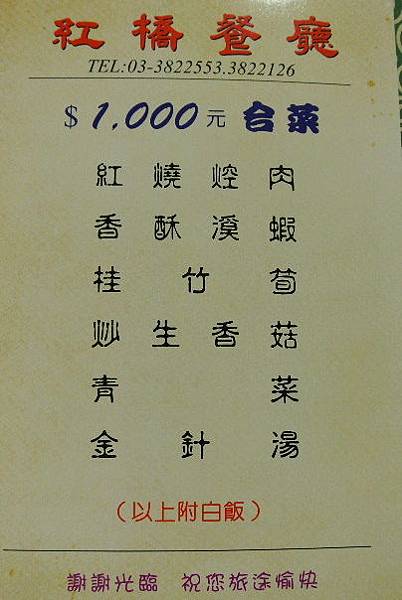 紅橋餐廳
TEL:03-3822553.3822126
$ 1,000元 合菜
紅燒焢肉
香酥溪蝦
桂竹筍
炒生香菇
青菜
金針湯
(以上附白飯)
謝謝光臨 祝您旅途愉快